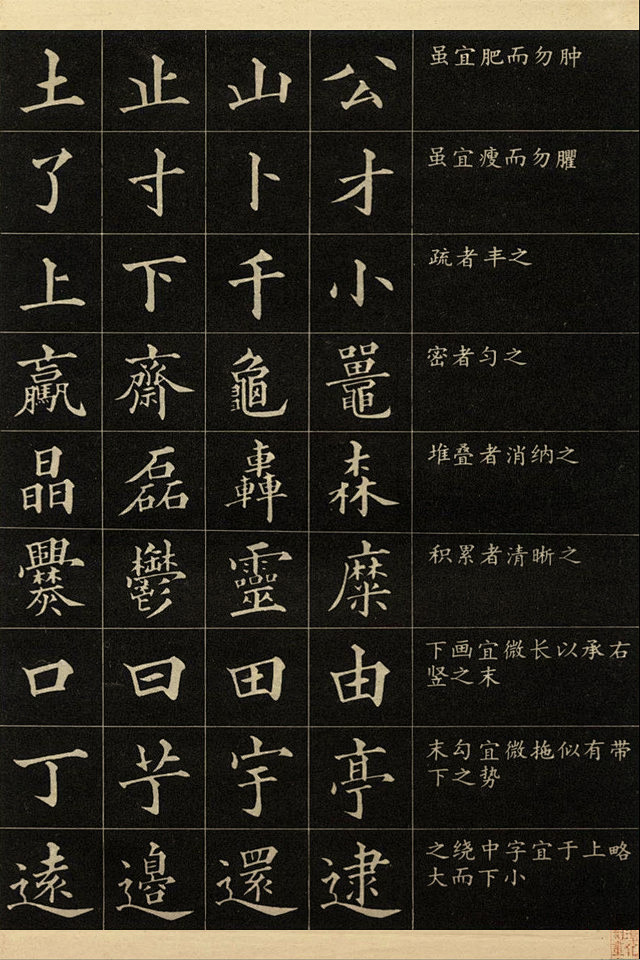 土止山公 虽宜肥而勿肿
了寸卜才 虽宜瘦而勿臞
上下千小 疏者丰之
驘齋龜鼉 密者匀之
晶磊轟森 堆叠者消纳之
爨鬱靈糜 积累者清晰之
口曰田由 下画宜微长以承右
竖之末
丁芋宇亭 末勾宜微拖似有带
下之势
遠邊還逮 之绕中字宜于上略
大而下小